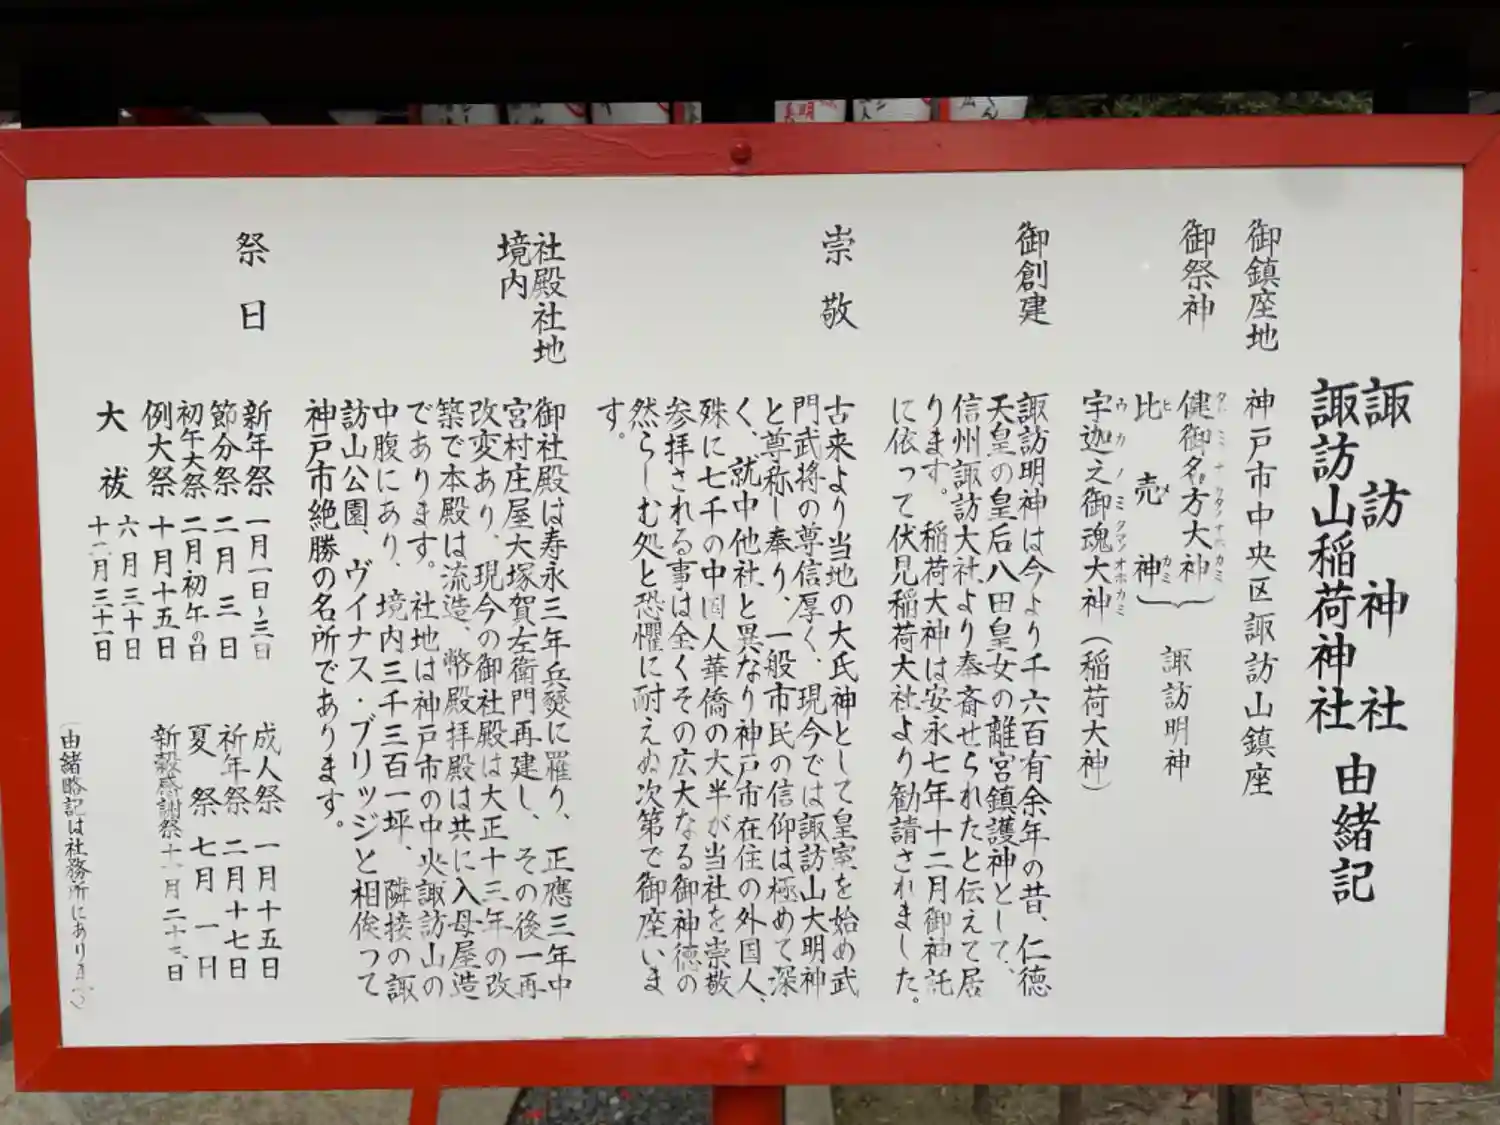 諏訪神社
諏訪山稲荷神社
由緒記
御鎮座地
神戸市中央区諏訪山鎮座
御祭神
健御名方大神
比売神
諏訪明神
宇迦之御魂大神（稲荷大神）
ウカノミタマノオホカミ
御創建
諏訪明神は今より千六百有余年の昔、仁徳
天皇の皇后八田皇女の離宮鎮護神として、
信州諏訪大社より奉斎せられたと伝えて居
ります。稲荷大神は安永七年十二月御神託
に依って伏見稲荷大社より勧請されました。
崇敬
古来より当地の大氏神として皇室を始め武
門武将の尊信厚く、現今では諏訪山大明神
と尊称し奉り、一般市民の信仰は極めて深
く、就中他社と異なり神戸市在住の外国人、
殊に七千の中国人華僑の大半が当社を崇敬
参拝される事は全くその広大なる御神徳の
然らしむ処と恐懼に耐えぬ次第で御座いま
す。
社殿社地
境内
御社殿は寿永三年兵燹に罹り、正應三年中
宮村庄屋大塚賀左衛門再建し、その後一再
改変あり、現今の御社殿は大正十三年の改
築で本殿は流造、幣殿拝殿は共に入母屋造
であります。社地は神戸市の中央諏訪山の
中腹にあり、境内三千三百一坪、隣接の諏
訪山公園、ヴイナス・ブリッジと相俟つて
神戸市絶勝の名所であります。
祭日
新年祭 一月一日〜三日
節分祭 二月三日
初午大祭 二月初午の日
例大祭 十月十五日
大祓 六月三十日
十二月三十一日
成人祭 一月十五日
祈年祭 二月十七日
夏祭 七月一日
新穀感謝祭 十一月二十三日
（由緒略記は社務所にあります）